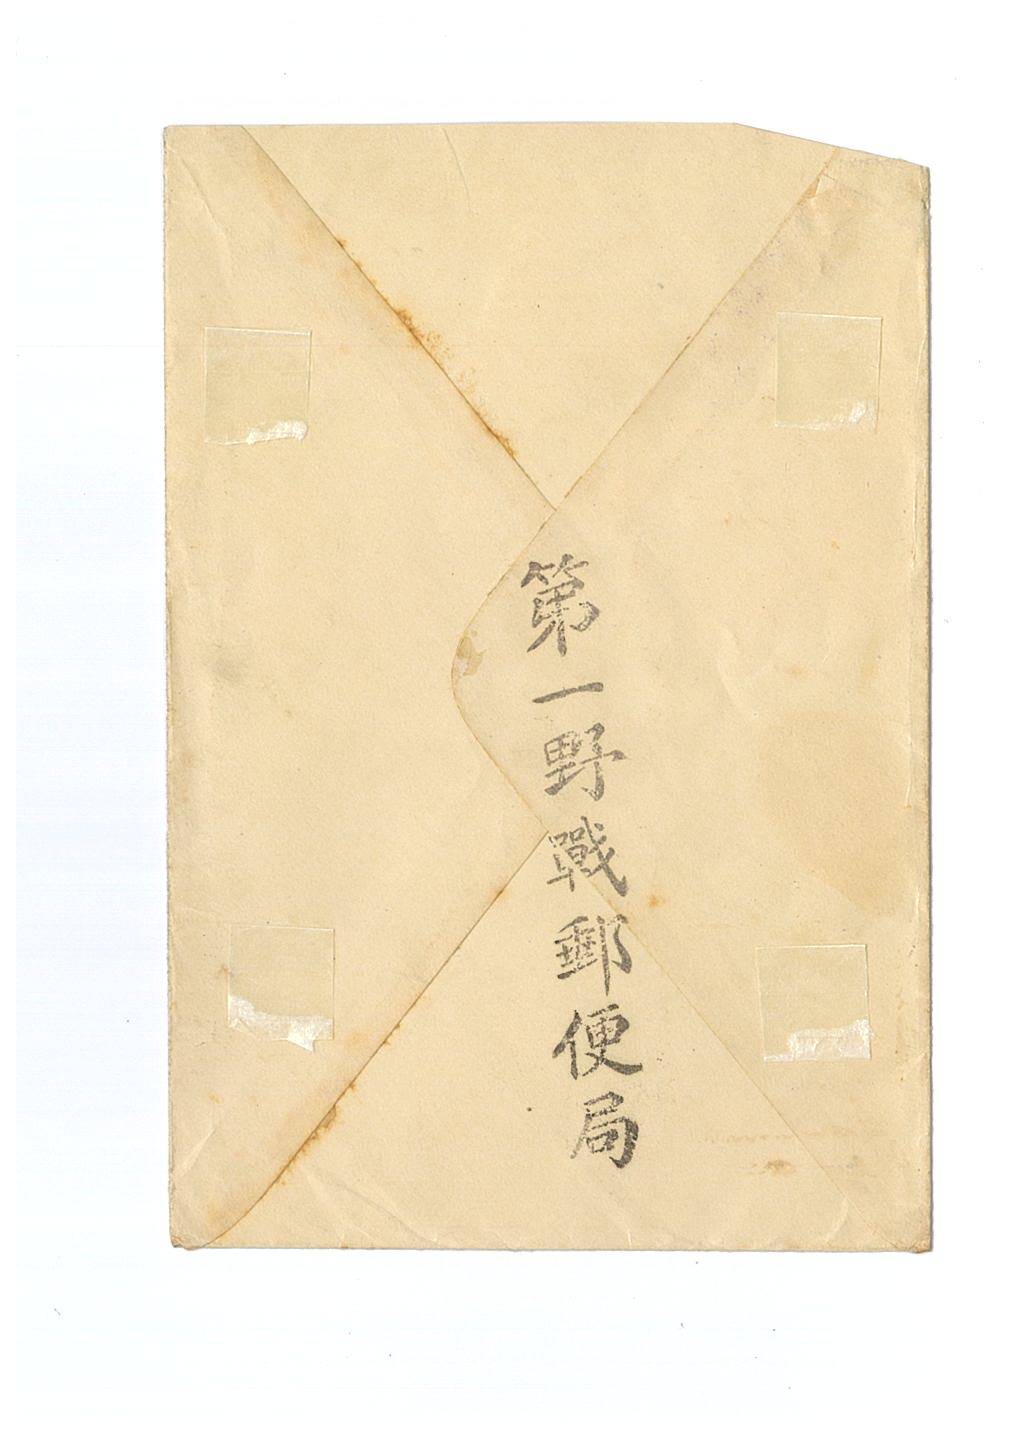 第一野戰郵便局